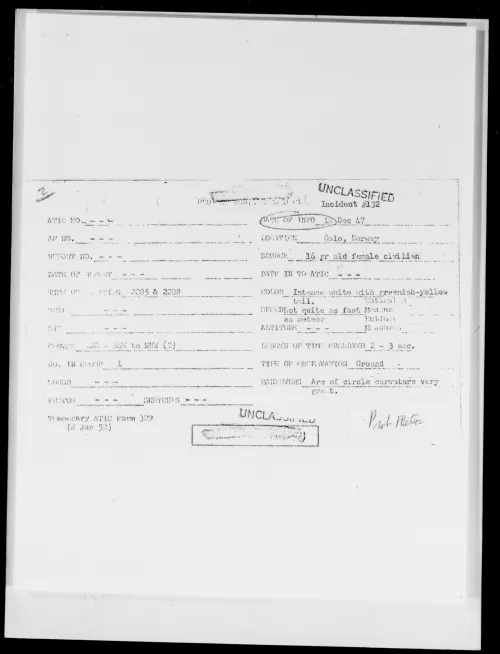 2
UNCLASSIFIED
Incident #132
ATIC NO. - - -
DATE OF INFO 12 Dec 47
AF NO. - - -
LOCATION Oslo, Norway
REPORT NO. - - -
SOURCE 16 yr old female civilian
DATE OF REPORT - - -
DATE IN TO ATIC - - -
TIME OF SIGHTING 2205 & 2208
COLOR Intense white with greenish-yellow
tail.
SHAPE - - -
SPEED Not quite as fast
as meteor
SIZE - - -
ALTITUDE - - -
COURSE to NNW (?)
LENGTH OF TIME OBSERVED 2 - 3 sec.
NO. IN GROUP 1
TYPE OF OBSERVATION Ground
SOUND - - -
MANEUVERS Arc of circle curvature very
great.
PHOTOS - - - SKETCHES - - -
Temporary ATIC Form 329
(2 Jan 52)
UNCLASSIFIED
Prob Meteor